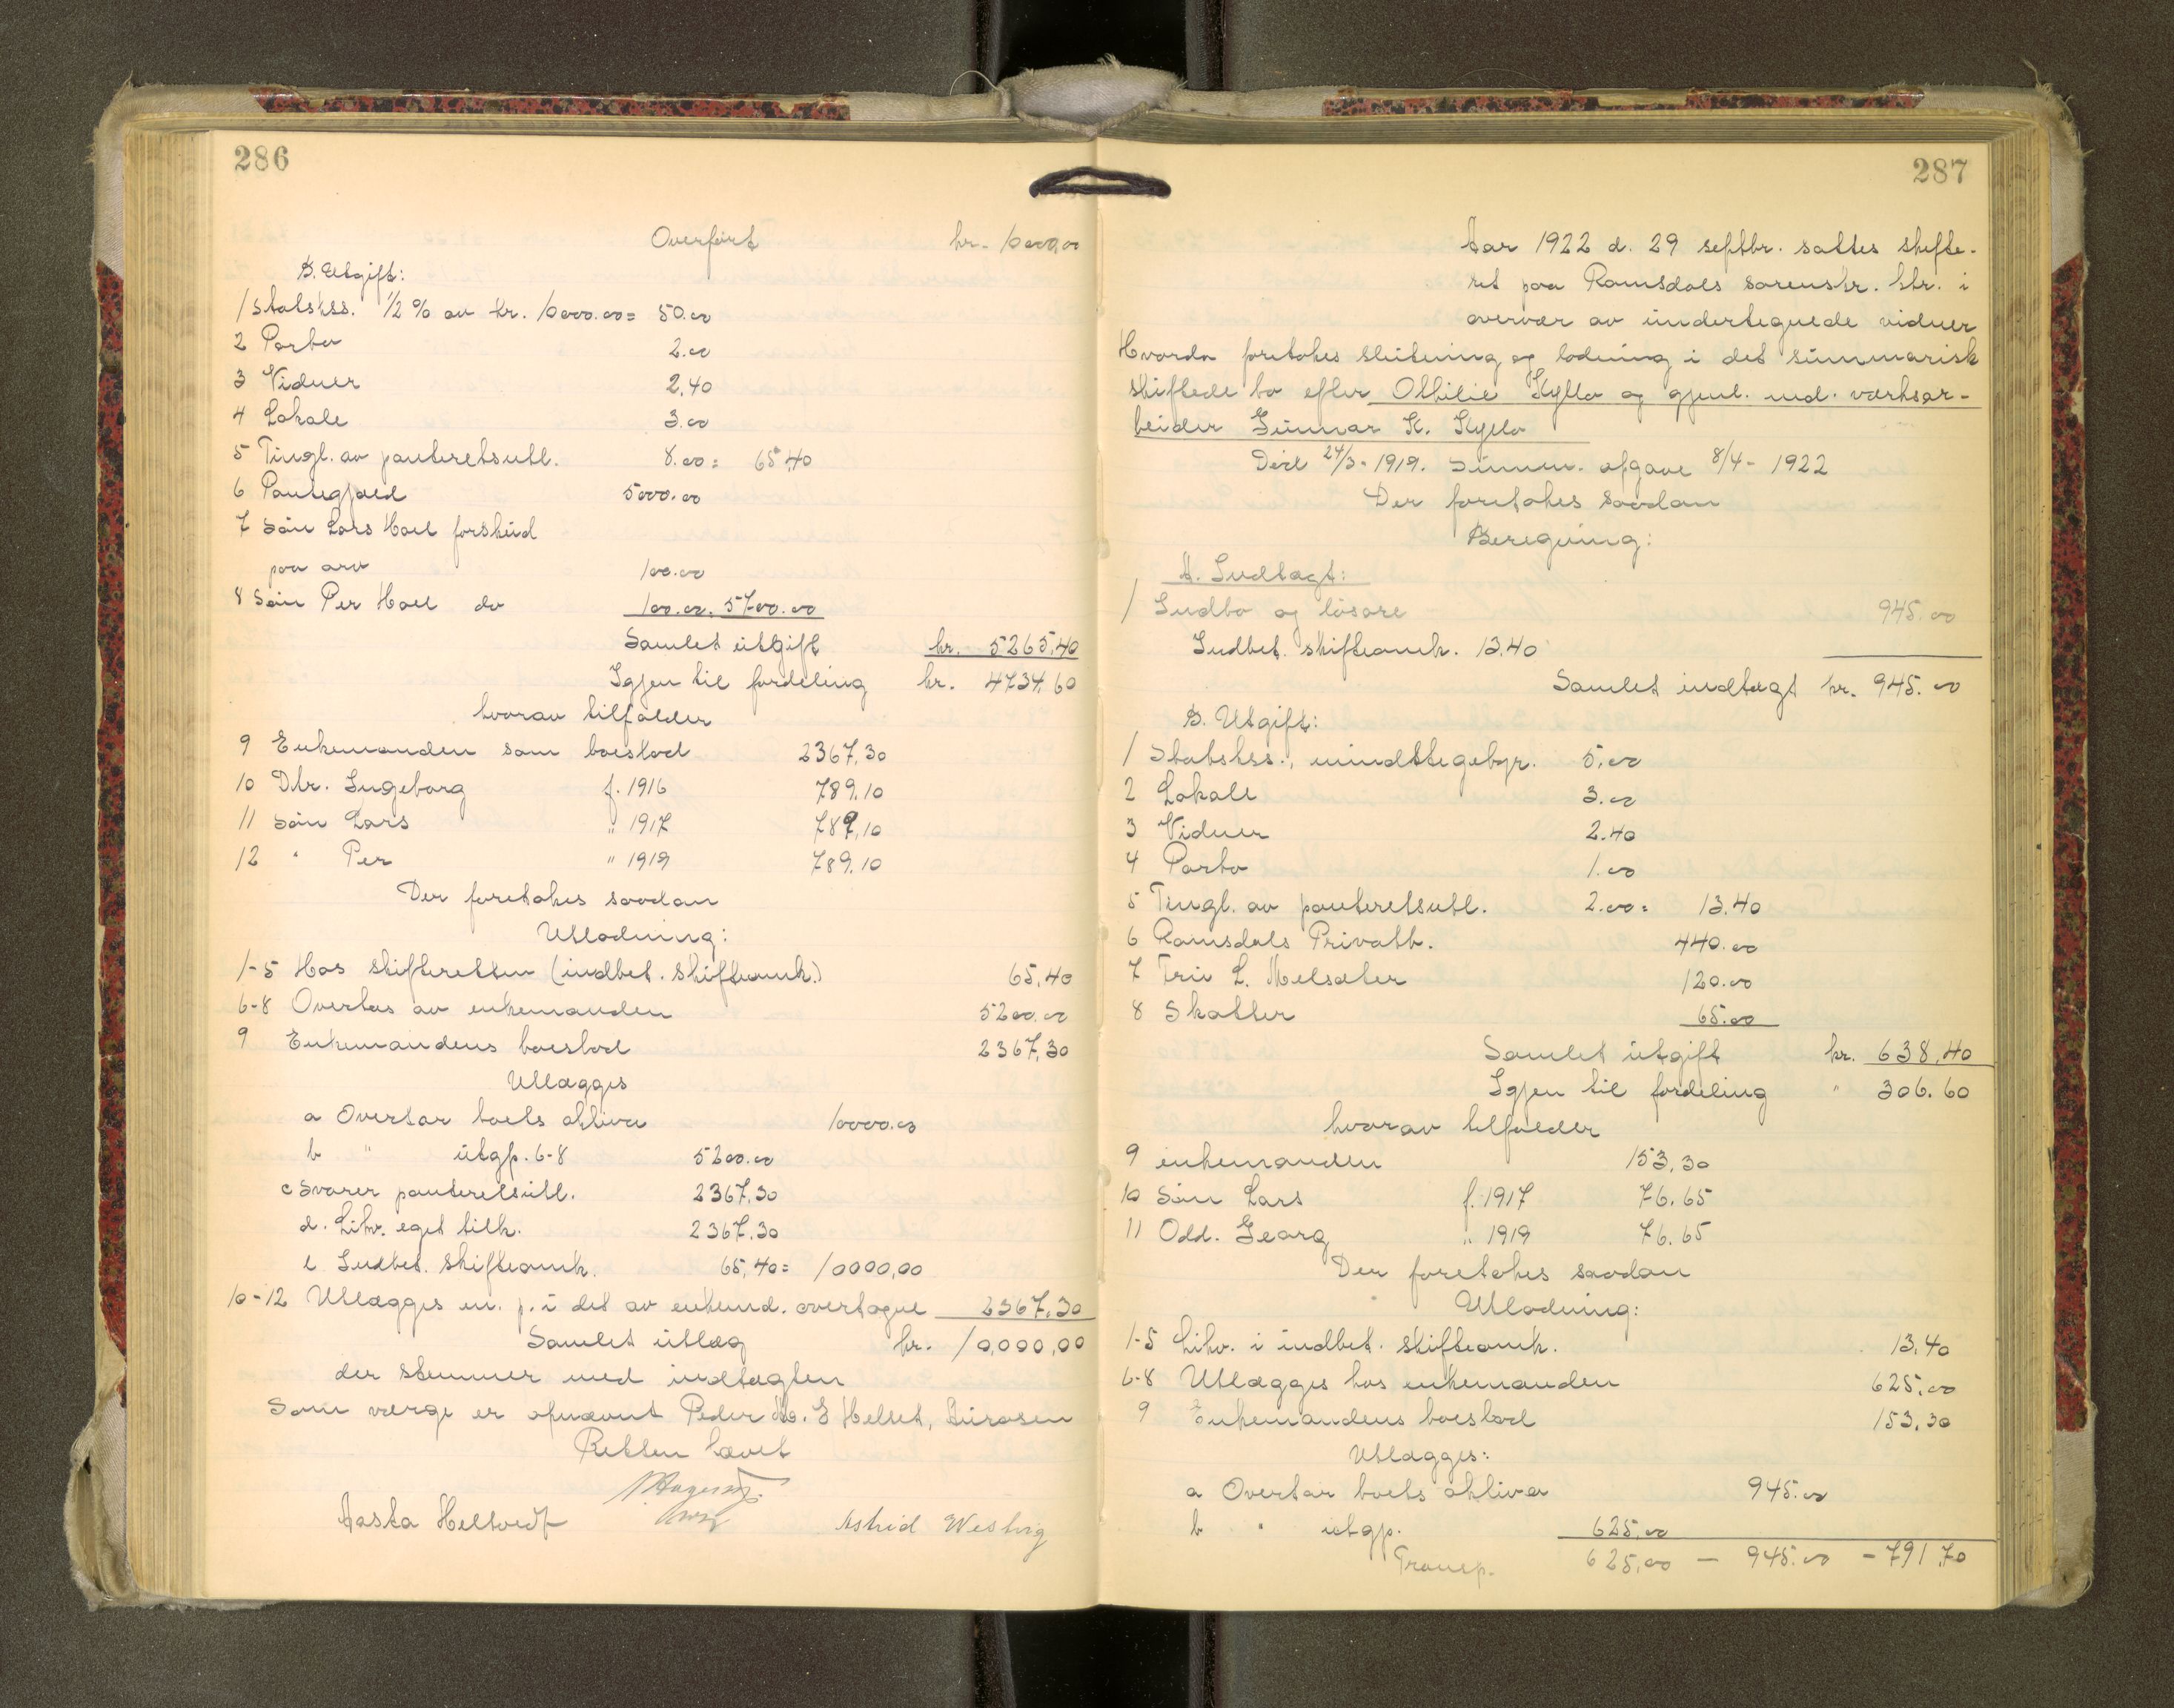 286
Overført kr. 10000,00
B. Utgift:
1 Statskss. 1/2 % av kr. 10000.00 = 50.00
2 Porto 2.00
3 Vidner 2.40
4 Lokale 3.00
5 Tingl. av panteretsutl. 8.00 = 65.40
6 Pantegjæld 5000.00
7 Søn Lars Hoel forskud
paa arv 100.00
8 Søn Per Hoel do 100.00. 5200.00
Samlet utgift kr. 5265,40
Igjen til fordeling kr. 4734,60
hvorav tilfalder
9 Enkemanden som boeslod 2367,30
10 Dtr. Ingeborg f. 1916 789.10
11 Søn Lars " 1917 789,10
12 " Per " 1919 789.10
Der foretokes saadan
Utlodning:
1-5 Hos skifteretten (indbet. skifteomk.) 65,40
6-8 Overtas av enkemanden 5200.00
9 Enkemandens boeslod 2367,30
Utlægges
a Overtar boets aktiva 10000.00
b " utgp. 6-8 5200.00
c Svarer panteretsutl. 2367,30
d. Likv. eget tilk. 2367.30
e Indbet. skifteomk. 65,40 = 10000,00
10-12 Utlægges en. p. i det av enkemd. overtagne 2367.30
Samlet utlæg kr. 10,000,00
der stemmer med indtægten
Som verge er opnævnt Peder E Helset, Aurosen
Retten hævet
Aasta Heltvedt Astrid Westvig
287
Aar 1922 d. 29 septbr. sattes skifte-
ret paa Romsdals sorenskr. ktr. i
overvær av undertegnede vidner
Hvorda foretokes slutning og lodning i det summarisk
skiftede bo efter Othilie Kylla og gjenl. md. verksar-
beider Gunnar K. Kylla
Død 24/3 - 1919. Summ. opgave 8/4 - 1922
Der foretokes saadan
Beregning:
A. Indtægt:
1 Indbo og løsøre 945.00
Indbet. skifteomk. 13.40
Samlet indtægt kr. 945.00
B. Utgift:
1 Statskss., mindstegebyr. 5.00
2 Lokale 3.00
3 Vidner 2.40
4 Porto 1.00
5 Tingl. av panteretsutl. 2.00 = 13.40
6 Romsdals Privatb. 440.00
7 Friv L. Melsæter 120.00
8 Skatter 65.00
Samlet utgift kr. 638,40
Igjen til fordeling " 306.60
hvorav tilfalder
9 enkemanden 153,30
10 Søn Lars f. 1917 76.65
11 Odd. Georg " 1919 76.65
Der foretokes saadan
Utlodning:
1-5 Likv. i indbet. skifteomk. 13.40
6-8 Utlægges hos enkemanden 625.00
9 Enkemandens boeslod 153,30
Utlægges:
a Overtar boets aktiva 945.00
b " utgp. 625,00
Transp. 625,00 — 945.00 - 791,70